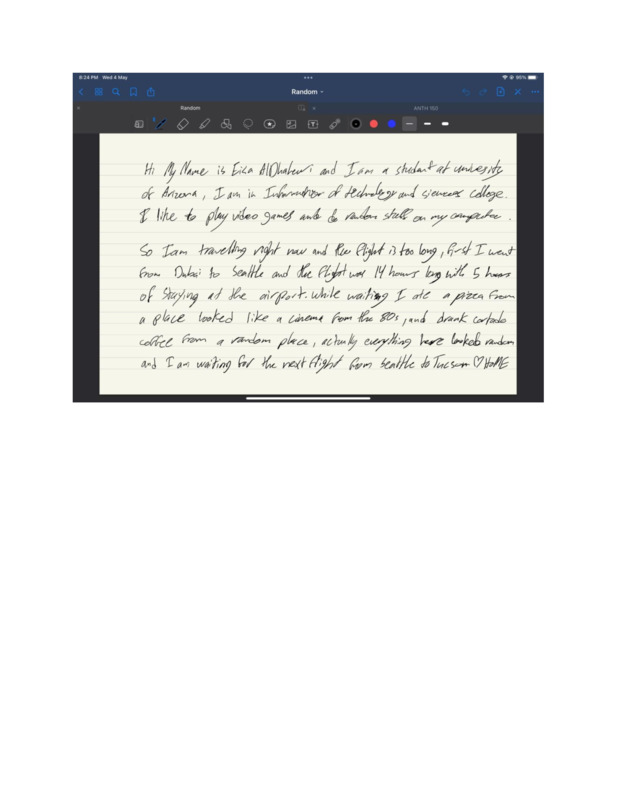 8:24 PM Wed 4 May
95%
Random
Random
ANTH 150
Hi My Name is and I am a student at university
of Arizona, I am in Information of technology and siences college.
I like to play video games and do random stuff on my computer.
So I am travelling right now and the flight is too long, first I went
from Dubai to Seattle and the flight was 14 hours long with 5 hours
of Staying at the airport. while waiting I ate a pizza from
a place looked like a cinema from the 80s, and drank cortado
coffee from a random place, actully everything here looked random
and I am waiting for the next flight from Seattle to Tucson ♡ HOME